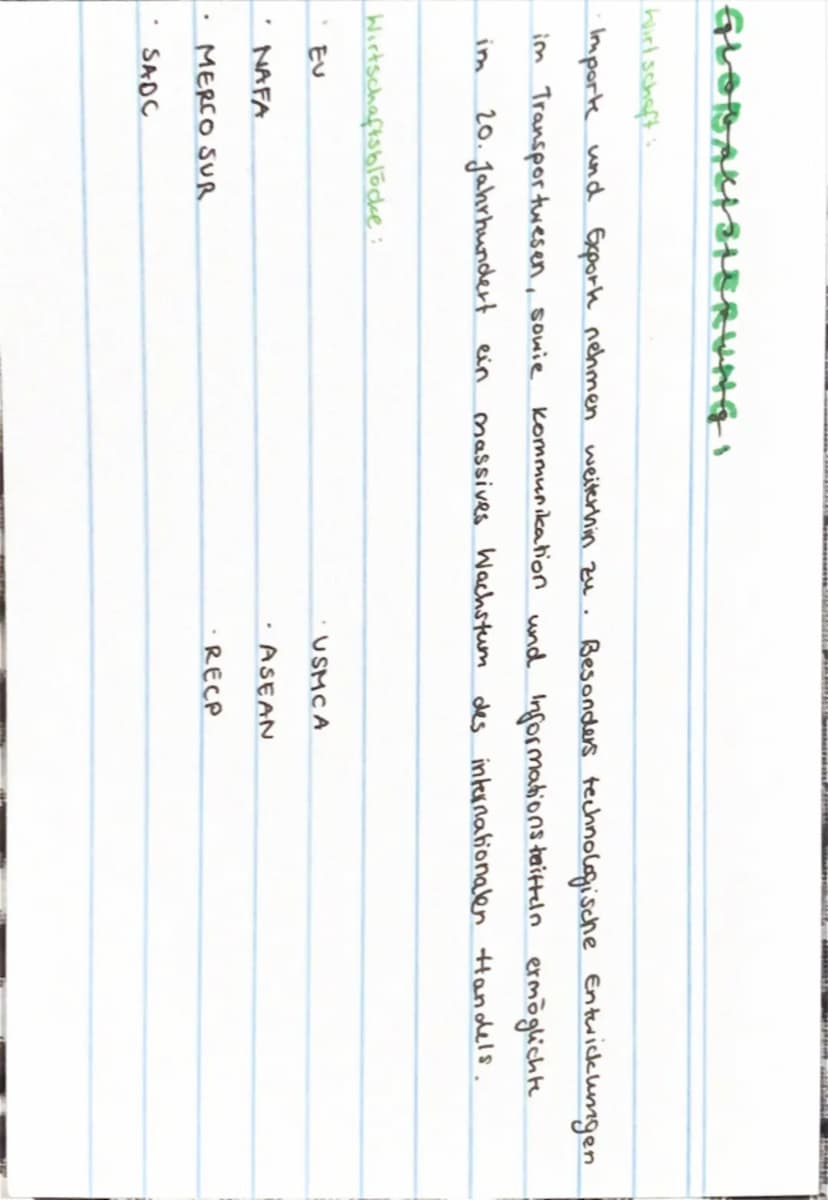 GLOBALISIERUNG:
Wirtschaft:
· Importe und Exporte nehmen weiterhin zu. Besonders technologische Entwicklungen
im Transportwesen, sowie Kommunikation und Informations ermöglichte
im 20. Jahrhundert ein massives Wachstum des internationalen Handels.
Wirtschaftsblöcke:
· EU · USMCA
· NAFA · ASEAN
· MERCOSUR · RECP
· SADC